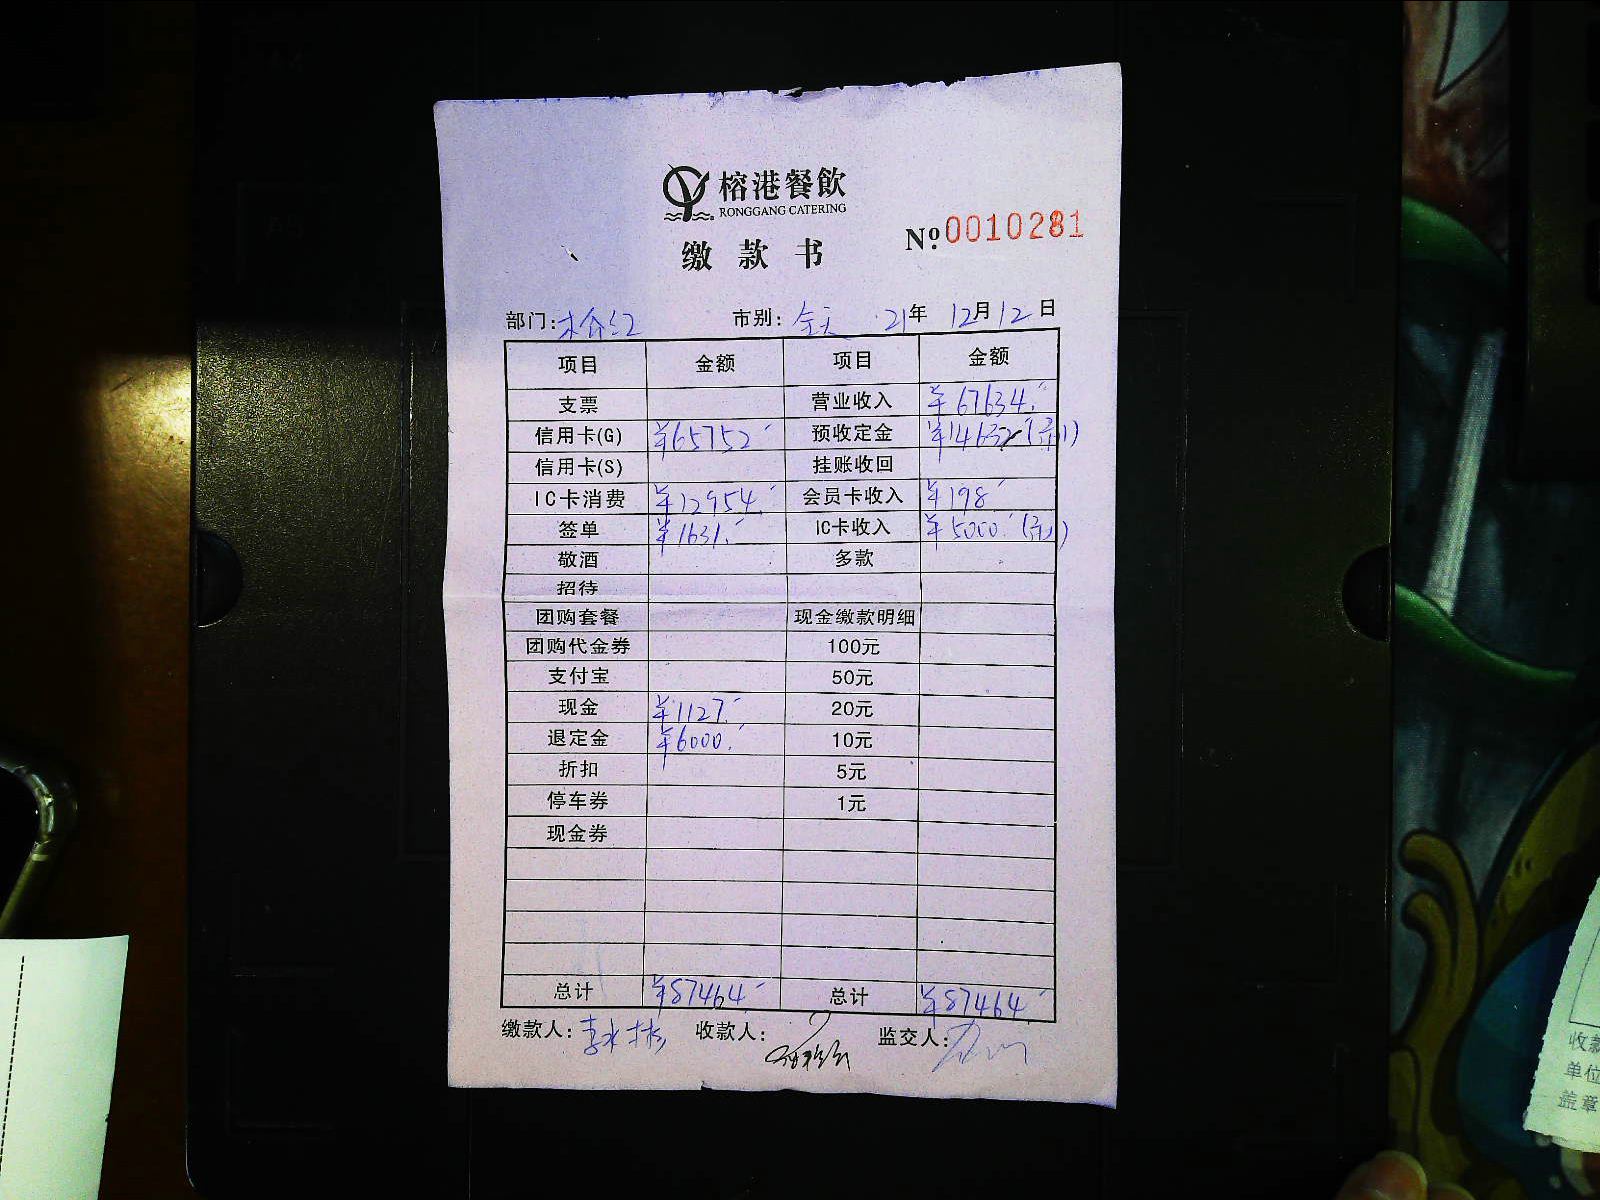 榕港餐飲
RONGGANG CATERING
缴款书
№ 0010281
部门: 市别: 全天 21年 12月12日
项目 金额 项目 金额
支票 营业收入 ¥67634.
信用卡(G) ¥65752 预收定金 ¥14632
信用卡(S) 挂账收回
IC卡消费 ¥12954. 会员卡收入 ¥198
签单 ¥1631. IC卡收入 ¥5000
敬酒 多款
招待
团购套餐 现金缴款明细
团购代金券 100元
支付宝 50元
现金 ¥1127. 20元
退定金 ¥6000. 10元
折扣 5元
停车券 1元
现金券
总计 ¥87464 总计 ¥87464
缴款人: 李水彬 收款人: 监交人:
收款
单位
盖章